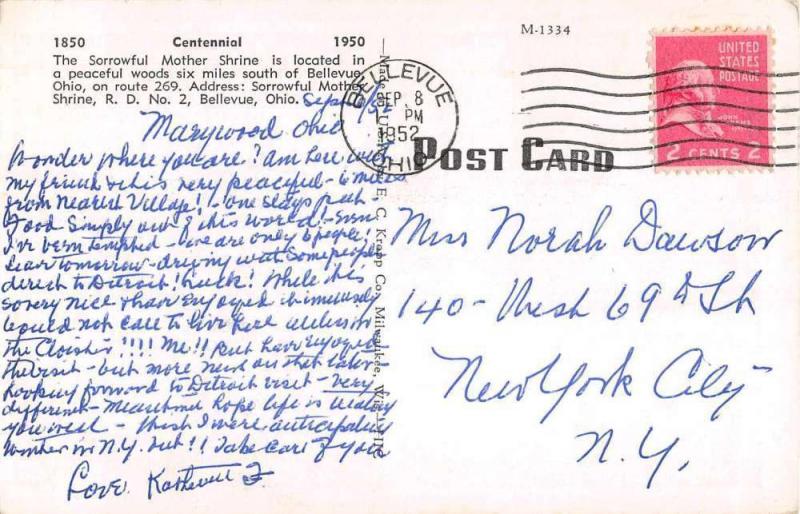 M-1334
1850 Centennial 1950
The Sorrowful Mother Shrine is located in
a peaceful woods six miles south of Bellevue,
Ohio, on route 269. Address: Sorrowful Mother
Shrine, R. D. No. 2, Bellevue, Ohio.
BELLEVUE
SEP 8
PM
1952
OHIO
UNITED
STATES
POSTAGE
2 CENTS 2
POST CARD
Made E. C. Kropp Co., Milwaukee, Wis.
Marywood Ohio
Wonder where you are? Am here with
my friend & this is very peaceful - 6 miles
from nearest Village! - one stays put -
Food simply out of this world! - Even
I've been tempted - we are only 6 people!
Leave tomorrow - driving with some people
direct to Detroit! Luck! While it is
so very nice & have enjoyed it immensely
would not care to live here
the Cloister!!!! Me!! But have enjoyed
the visit - but more later
looking forward to Detroit visit - Very
different - hope life is treating
you well - Wish I were anticipating
winter in N.Y. but!! Take care of you
Love.
Miss Norah Dawson
140 - West 69th St
New York City
N.Y.